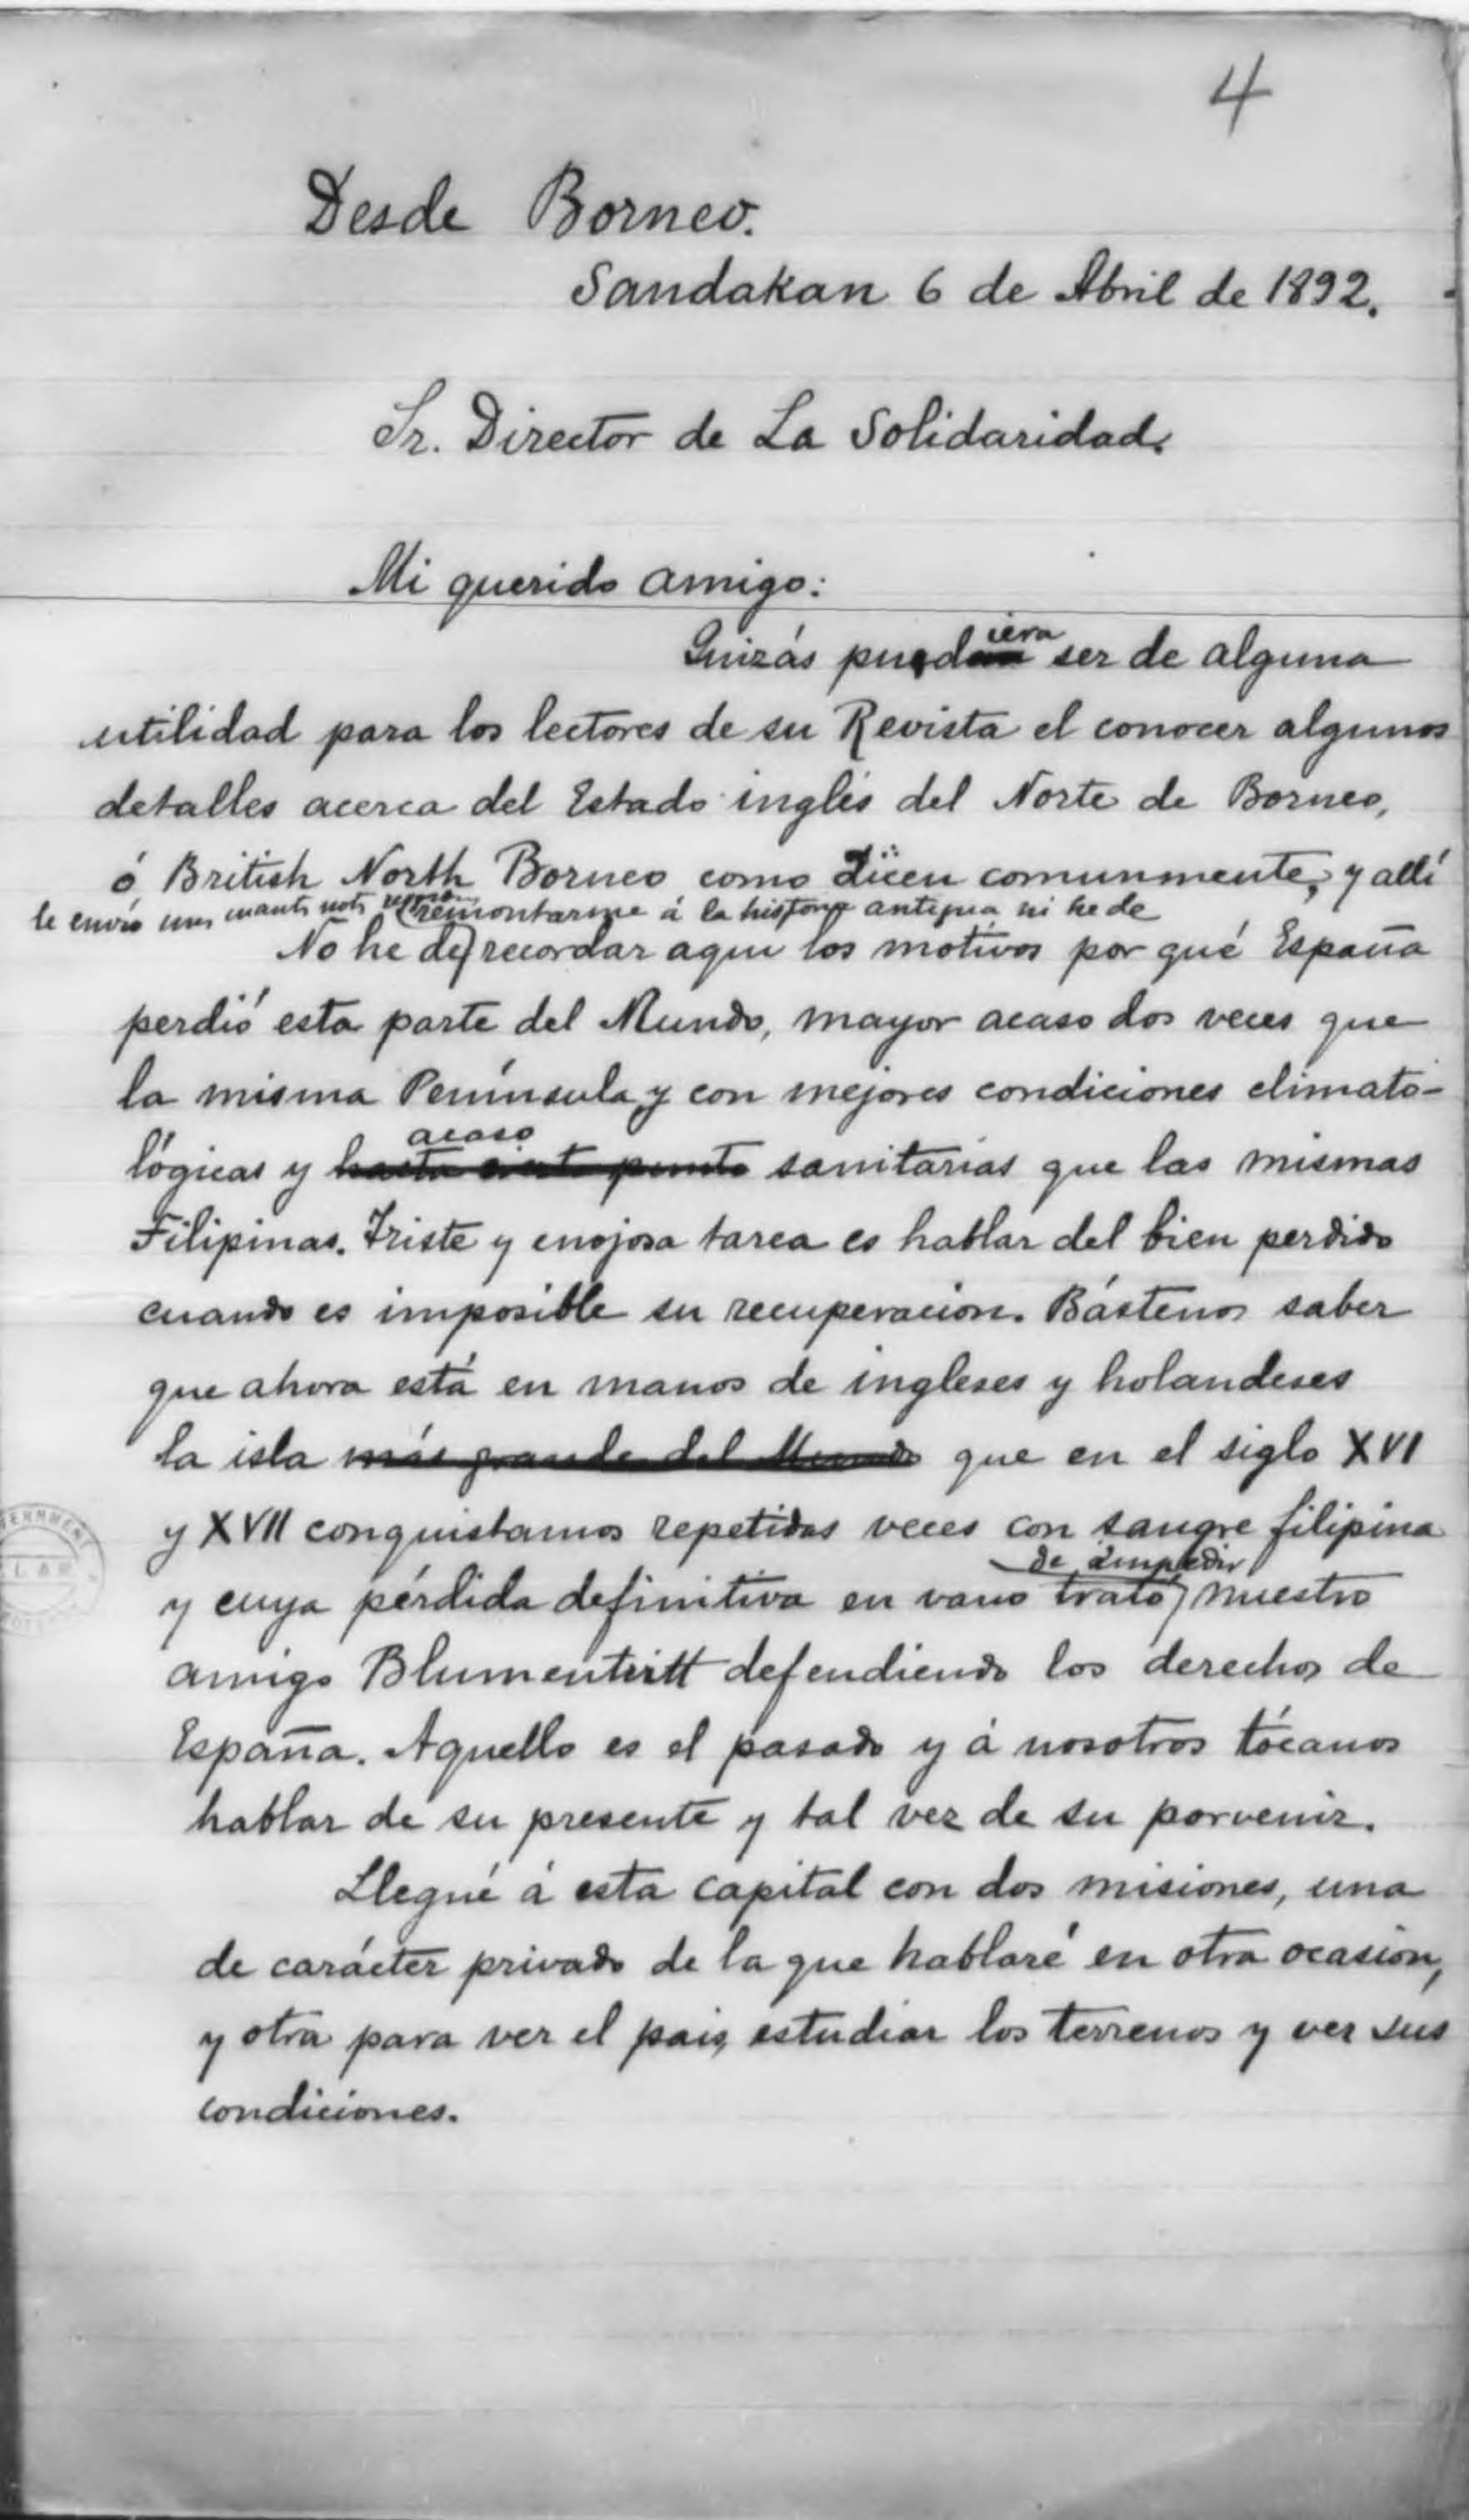 4
Desde Borneo.
Sandakan 6 de Abril de 1892.
Sr. Director de La Solidaridad.
Mi querido amigo:
iera
Quizás pueda ser de alguna
utilidad para los lectores de su Revista el conocer algunos
detalles acerca del Estado inglés del Norte de Borneo,
ó British North Borneo como dicen comunmente, y allí
le envío remontarme á la historia antigua ni he de
No he de recordar aqui los motivos por qué España
perdió esta parte del Mundo, mayor acaso dos veces que
la misma Península y con mejores condiciones climato-
acaso
lógicas y hasta cierto punto sanitarias que las mismas
Filipinas. Triste y enojosa tarea es hablar del bien perdido
cuando es imposible su recuperacion. Bástenos saber
que ahora está en manos de ingleses y holandeses
la isla más grande del Mundo que en el siglo XVI
y XVII conquistamos repetidas veces con sangre filipina
de impedir
y cuya pérdida definitiva en vano trató nuestro
amigo Blumentritt defendiendo los derechos de
España. Aquello es el pasado y á nosotros tócanos
hablar de su presente y tal vez de su porvenir.
Llegué á esta capital con dos misiones, una
de carácter privado de la que hablaré en otra ocasion,
y otra para ver el pais, estudiar los terrenos y ver sus
condiciones.